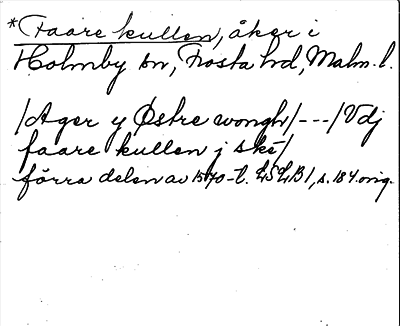 *Faare kullen, åker i
Holmby sn, Frosta hd, Malm. l.
/Ager y Østre wongh/---/Vdj
faare kullen j ske/
förra delen av 1570-t. LSLB1, s. 184 orig.